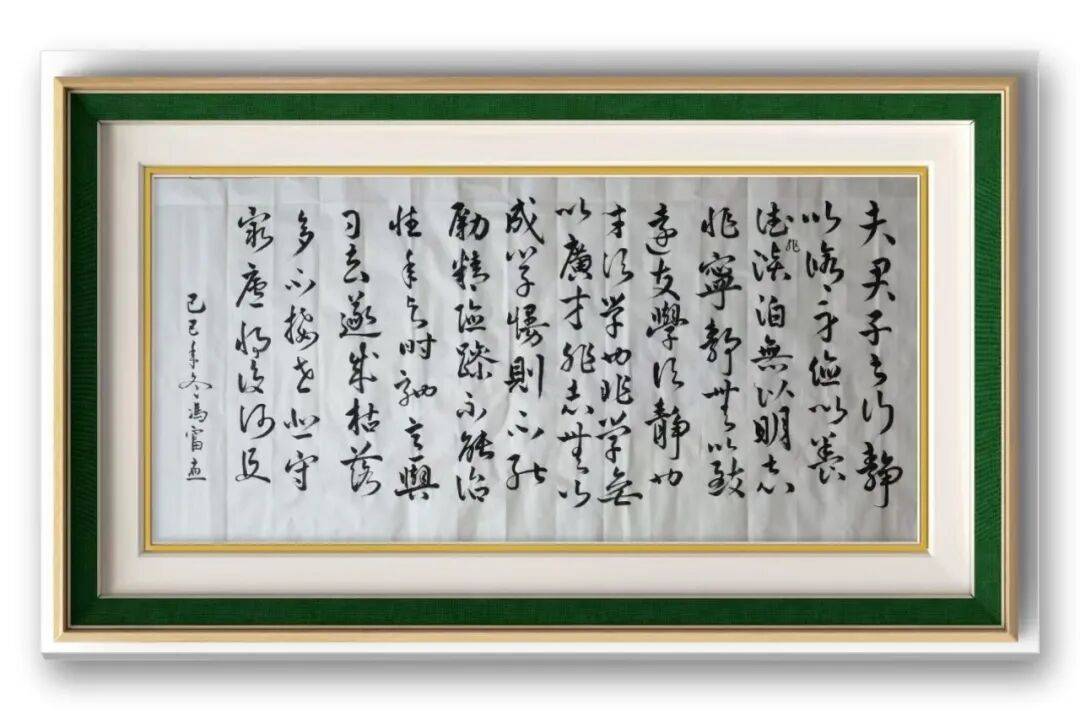 夫君子之行静
以修身儉以養
德非淡泊無以明志
非寧静無以致
遠夫學须静也
才须学也非学無
以廣才非志無以
成学慢則不能
励精險躁不能治
性年与时驰意與
日去遂成枯落
多不接世悲守
窮廬将復何及
己巳年冬馮富